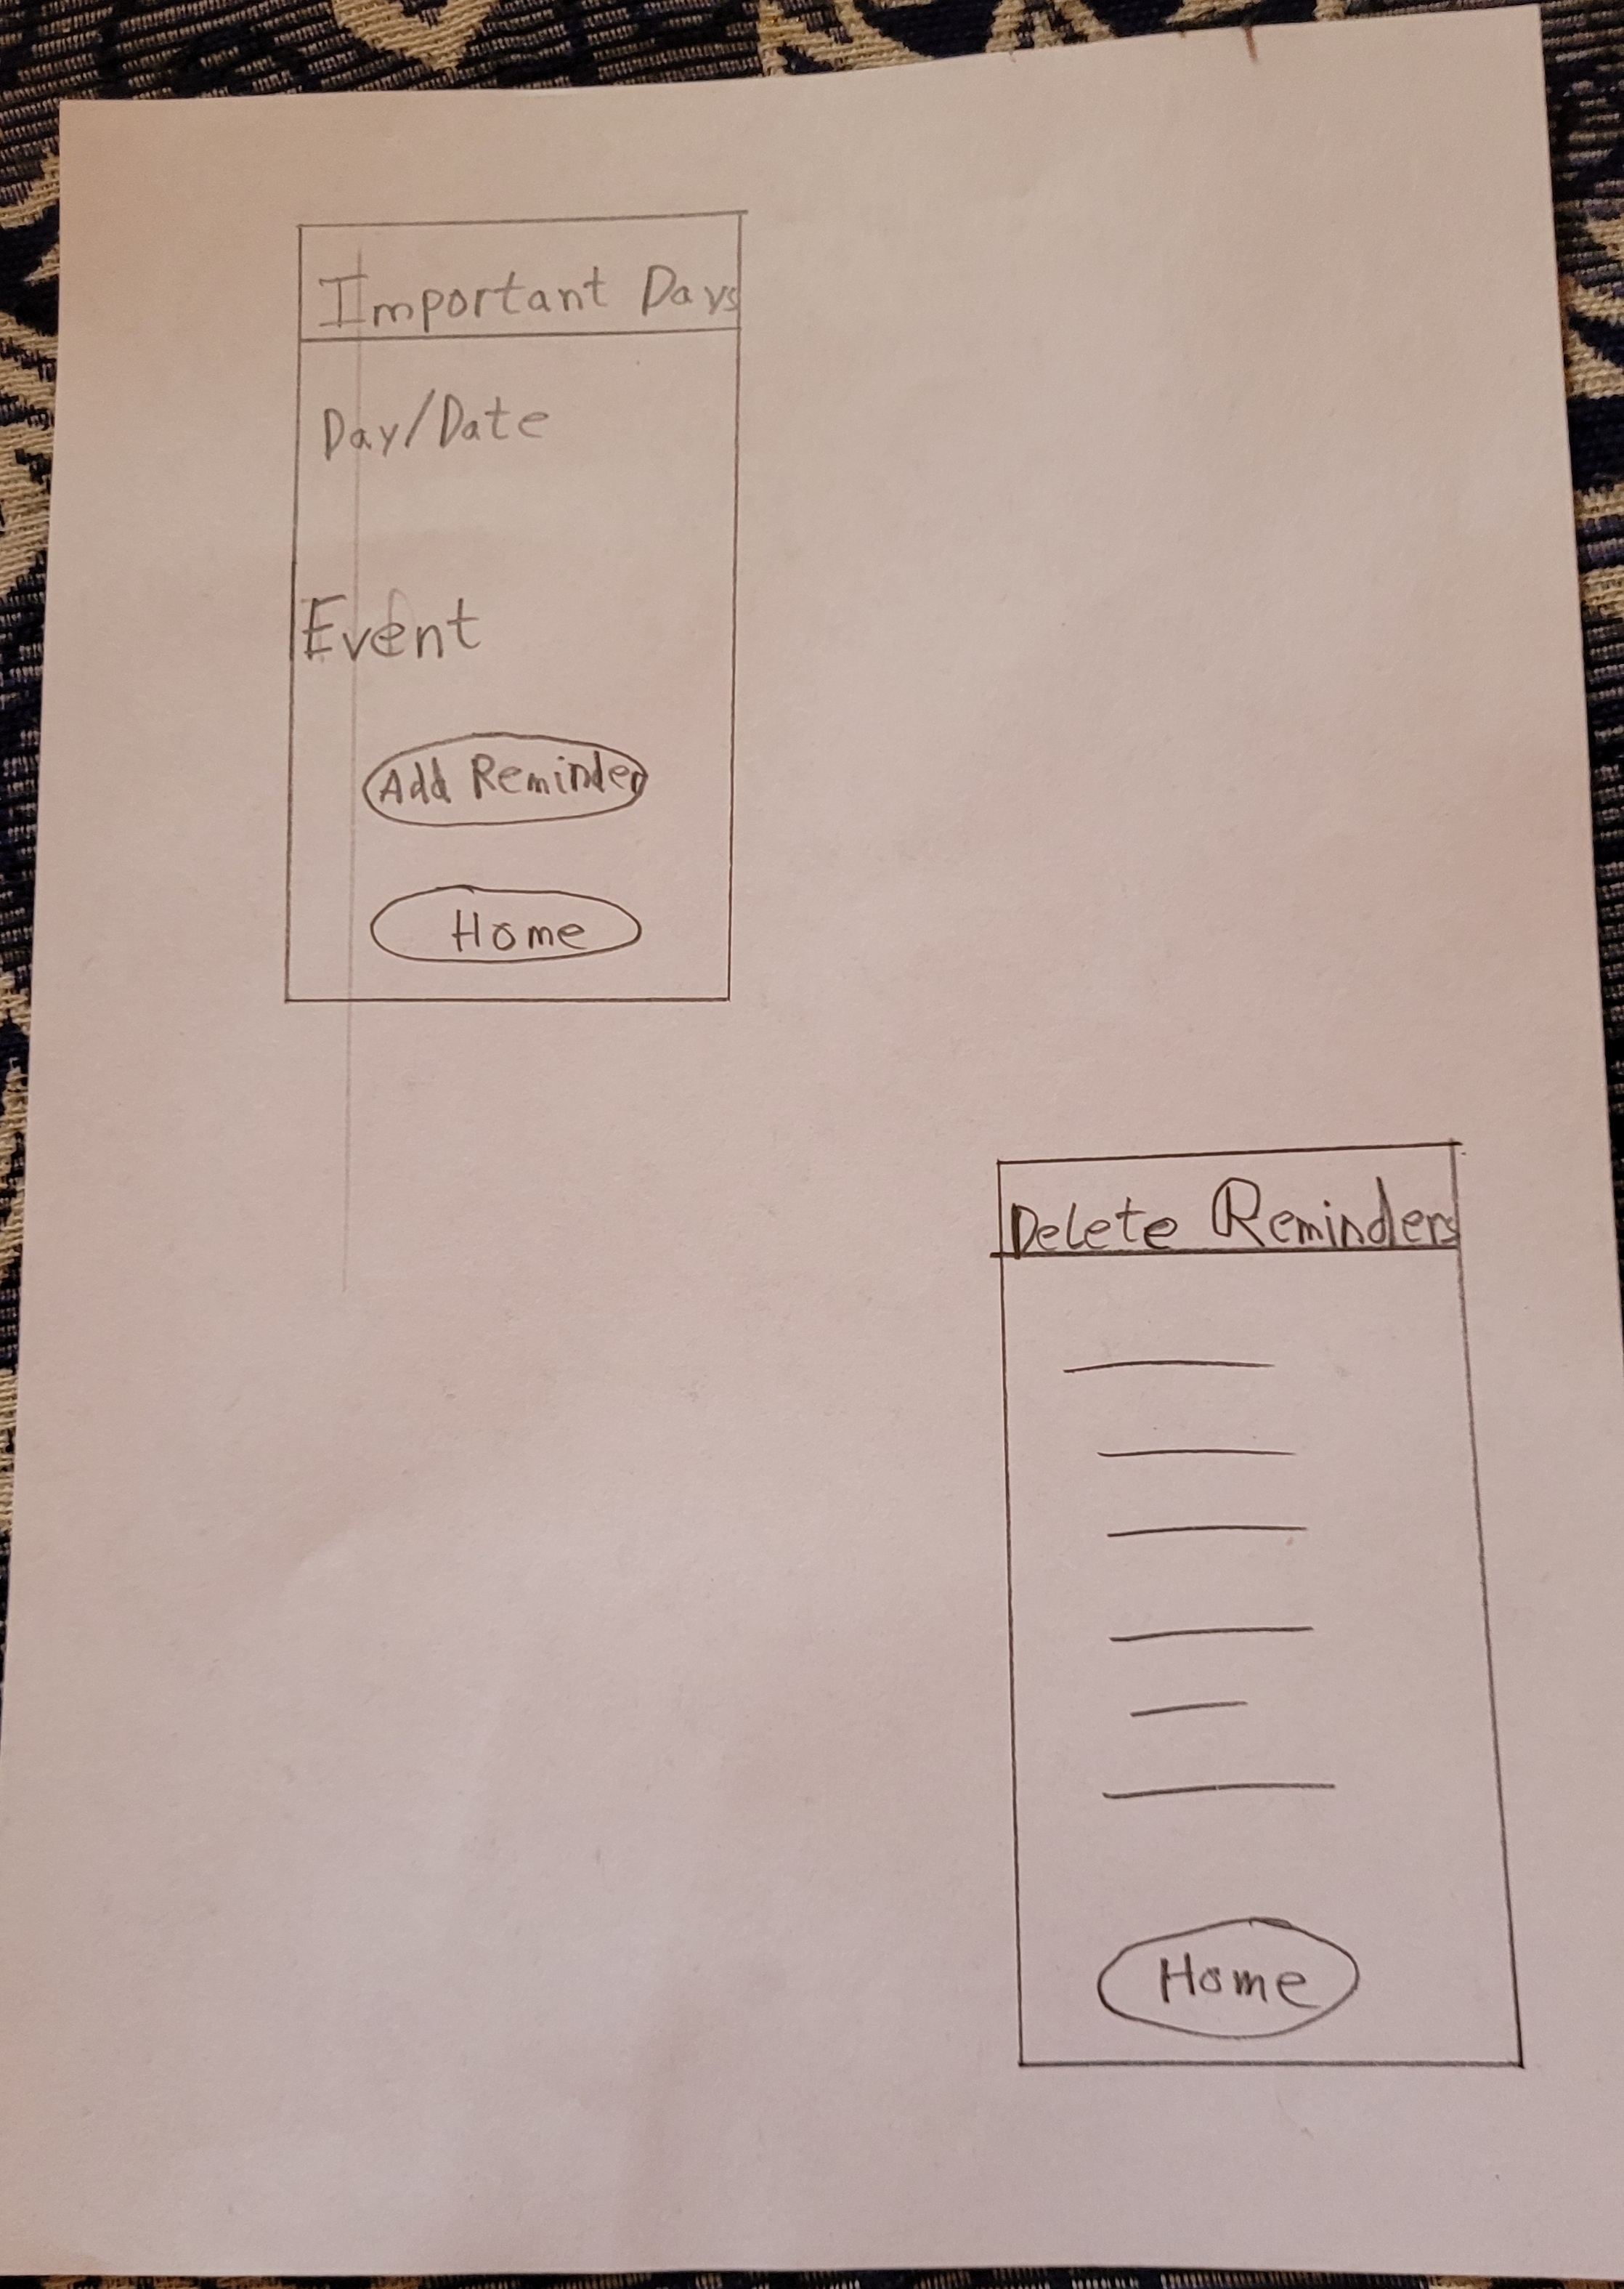 Important Days
Day/Date
Event
Add Reminder
Home
Delete Reminders
Home